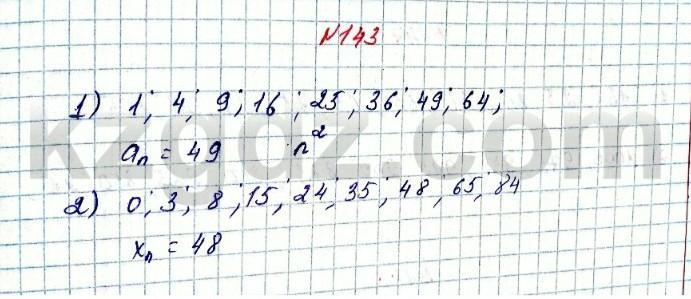 №143
1) 1; 4; 9; 16; 25; 36; 49; 64;
aₙ = 49 n²
2) 0; 3; 8; 15; 24; 35; 48; 65; 84
xₙ = 48
kzgdz.com